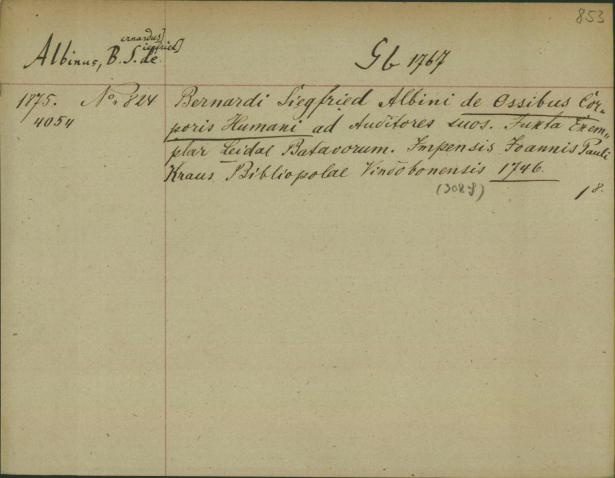 853
ernardus] iegfried]
Albinus, B. S. de.
Gb 1767
1875. No. 824
4054
Bernardi Siegfried Albini de Ossibus Cor-
poris Humani ad Auditores suos. Juxta Exem-
plar Leidae Batavorum. Impensis Joannis Pauli
Kraus Bibliopolae Vindobonensis 1746.
(308 S)
1 8.